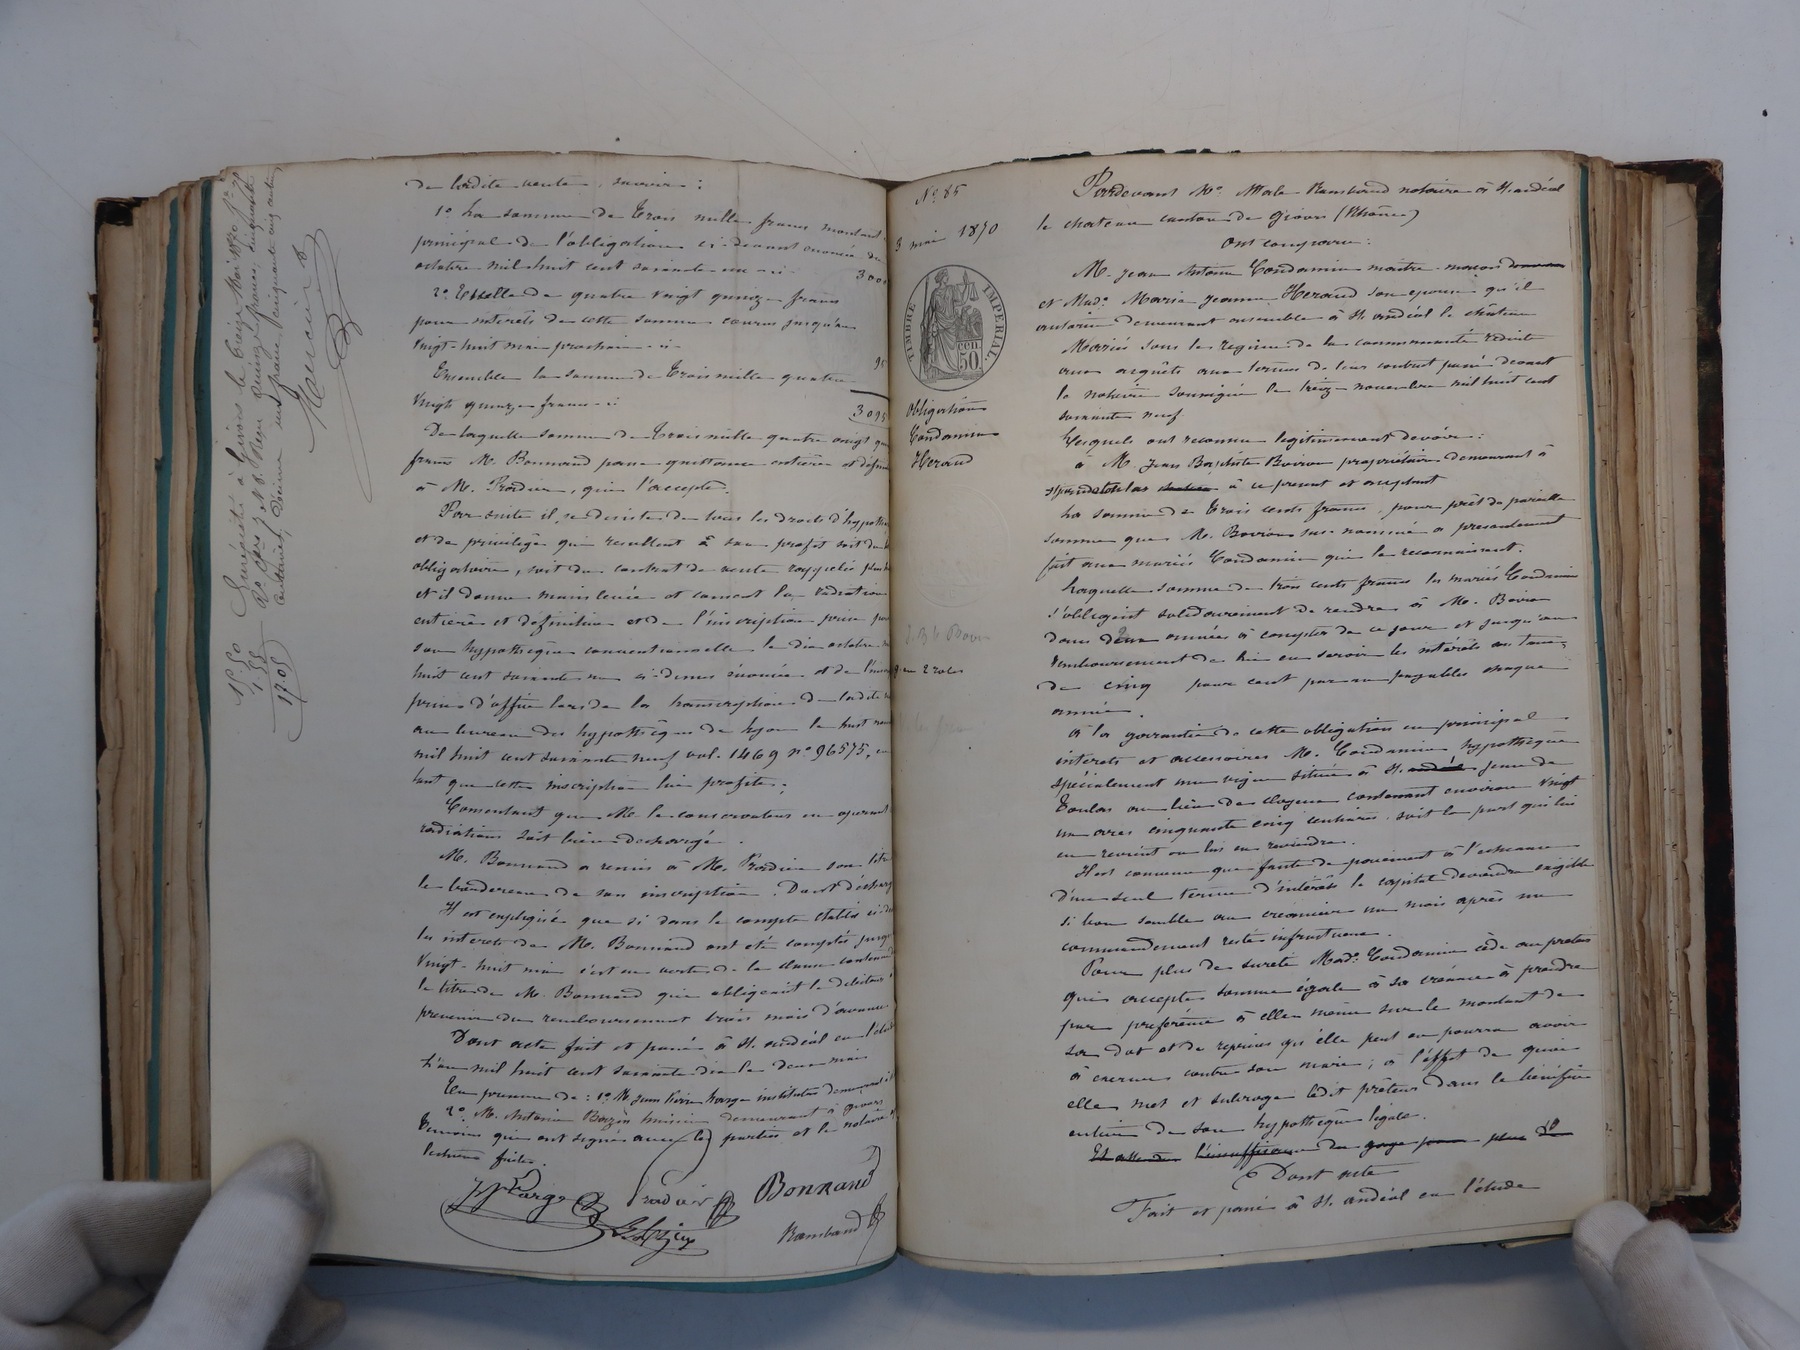 de ladite vente, savoir :
1o La somme de trois mille francs montant
principal de l'obligation ci-devant énoncée du
octobre mil huit cent soixante un ci 3000
2o Et celle de quatre vingt quinze francs
pour intérêts de cette somme courus jusqu'au
vingt-huit mai prochain ci
95
Ensemble la somme de trois mille quatre
vingt quinze francs ci
3095
De laquelle somme de trois mille quatre vingt
francs M. Bonnand passe quittance entière et
à M. Pradier, qui l'accepte.
Par suite il se désiste de tous les droits d'
et de privilège qui résultent à son profit soit de
obligatoire, soit du contrat de vente rappelée
et il donne mainlevée et consent la radiation
entière et définitive et de l'inscription prise
son hypothèque conventionnelle le dix octobre
huit cent soixante un ci-dessus énoncée et de l'
prise d'office lors de la transcription de ladite
au bureau des hypothèques de Lyon le huit
mil huit cent soixante neuf vol. 1469 no 96575, en
tant que cette inscription lui profite.
Consentant que M le conservateur en opérant
radiations soit bien déchargé.
M. Bonnand a remis à M. Pradier son titre
le bordereau de son inscription. Dont
Il est expliqué que si dans le compte établi
les intérêts de M. Bonnand ont été comptés
vingt-huit mai c'est en vertu de la clause
le titre de M. Bonnand qui obligeait le débiteur
prévenir du remboursement trois mois d'avance.
Dont acte fait et passé à St. andéol en l'étude
L'an mil huit cent soixante dix le deux mai
En présence de : 1o M. Jean Pierre Large instituteur demeurant à
2o M. Antoine huissier demeurant à givors
témoins qui ont signé avec les parties et le notaire
lecture faite.
Large Pradier Bonnand
Rambaud
Enregistré à Givors le treize Mai 1870
quinze francs cinquante
décime un franc cinquante cinq centimes
Mercier
15.50
1.55
17.05
No 85
3 mai 1870
TIMBRE IMPERIAL
50 CEN
Obligation
Condamin
Heraud
J. Bte Boiron
Pardevant Me Rambaud notaire à St. andéol
le chateau canton de givors (Rhône)
Ont comparu :
M. Jean Antoine Condamin maître maçon
et Made Marie Jeanne Heraud son épouse qu'il
autorise demeurant ensemble à St. andéol le château
Mariés sous le régime de la communauté réduite
aux acquêts aux termes de leur contrat passé devant
le notaire soussigné le treize novembre mil huit cent
soixante neuf
Lesquels ont reconnu légitimement devoir :
à M. Jean Baptiste Boiron propriétaire demeurant à
à ce présent et acceptant
La somme de trois cents francs, pour prêt de pareille
somme que M. Boiron sus-nommé a présentement
fait aux mariés Condamin qui le reconnaissent.
Laquelle somme de trois cents francs les mariés Condamin
s'obligent solidairement de rendre à M. Boiron
dans deux années à compter de ce jour et jusqu'au
remboursement de lui en servir les intérêts au taux
de cinq pour cent par an payables chaque
année.
A la garantie de cette obligation en principal
intérêts et accessoires M. Condamin hypothèque
spécialement une vigne située à St. jean de
Toulas au lieu de contenant environ vingt
un ares cinquante cinq centiares, soit la part qui lui
en revient ou lui en reviendra.
Il est convenu que faute de paiement à l'échéance
d'un seul terme d'intérêts le capital deviendra exigible
si bon semble au créancier un mois après un
commandement resté infructueux.
Pour plus de sureté Made Condamin cède au prêteur
qui accepte somme égale à sa créance à prendre
par préférence à elle même sur le montant de
sa dot et de reprises qu'elle peut ou pourra avoir
à exercer contre son mari ; à l'effet de quoi
elle met et subroge ledit prêteur dans le bénéfice
entier de son hypothèque légale.
Dont acte
Fait et passé à St. andéol en l'étude